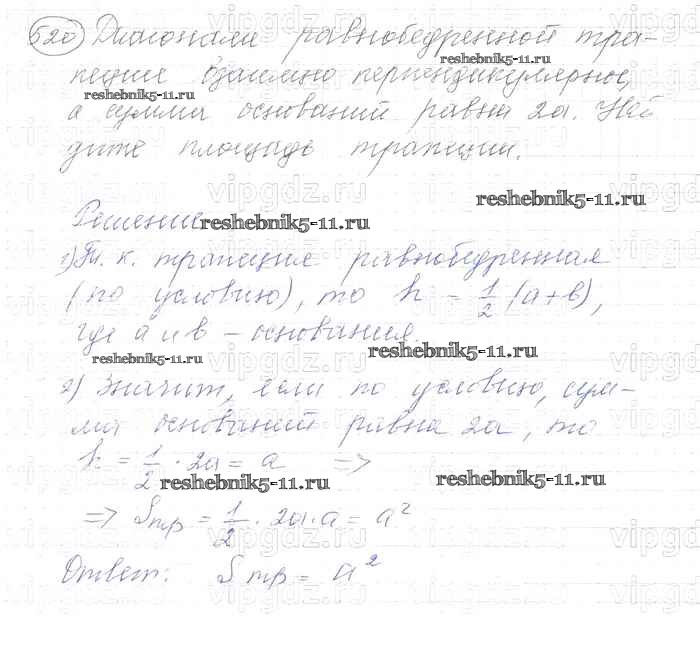 520 Диагонали равнобедренной тра-
пеции взаимно перпендикулярное,
reshebnik5-11.ru
reshebnik5-11.ru
а сумма оснований равна 2а. Най
дите площадь трапеции.
reshebnik5-11.ru
Решение
reshebnik5-11.ru
1) Т. к. трапеция равнобедренная
(по условию), то h = 1/2 (a+b),
где a и b – основания.
reshebnik5-11.ru
reshebnik5-11.ru
2) Значит, если по условию, сум-
ма оснований равна 2a, то
h = 1/2 · 2a = a =>
reshebnik5-11.ru
reshebnik5-11.ru
=> Sтр = 1/2 · 2a · a = a²
Ответ: Sтр = a²
vipgdz.ru